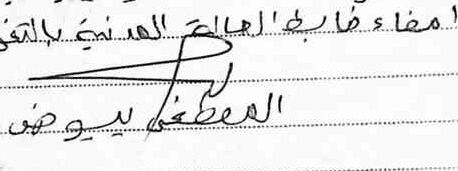 امضاء ضابط الحالة المدنية بالتفو
المصطفى بيوض